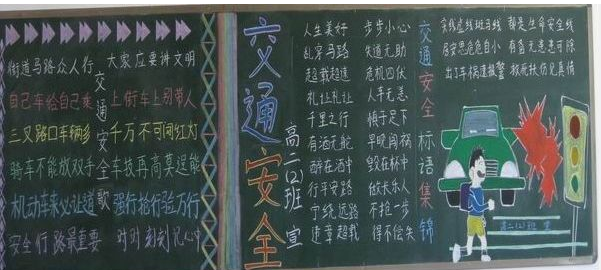 街道马路众人行 大家应要讲文明
自己车给自己乘 上街车上别带人
三叉路口车辆多 千万不可闯红灯
骑车不能放双手 车技再高莫逞能
机动车来必让道 强行抢行
安全行路最重要 时时刻刻记心中
交通安全歌
交通安全
高二(2)班 宣
人生美好 步步小心
乱穿马路 失道无助
超载超速 危机四伏
礼让礼让 人手无恙
千里之行 慎于足下
有酒无舵 早晚闯祸
醉在酒中 毁在杯中
行平安路 做长乐人
宁绕远路 不抢一步
违章超载 得不偿失
交通安全标语集锦
实线虚线斑马线 都是生命安全线
居安思危危自小 有备无患患可除
出了车祸速报警 救死扶伤见真情
高二(2)班 宣